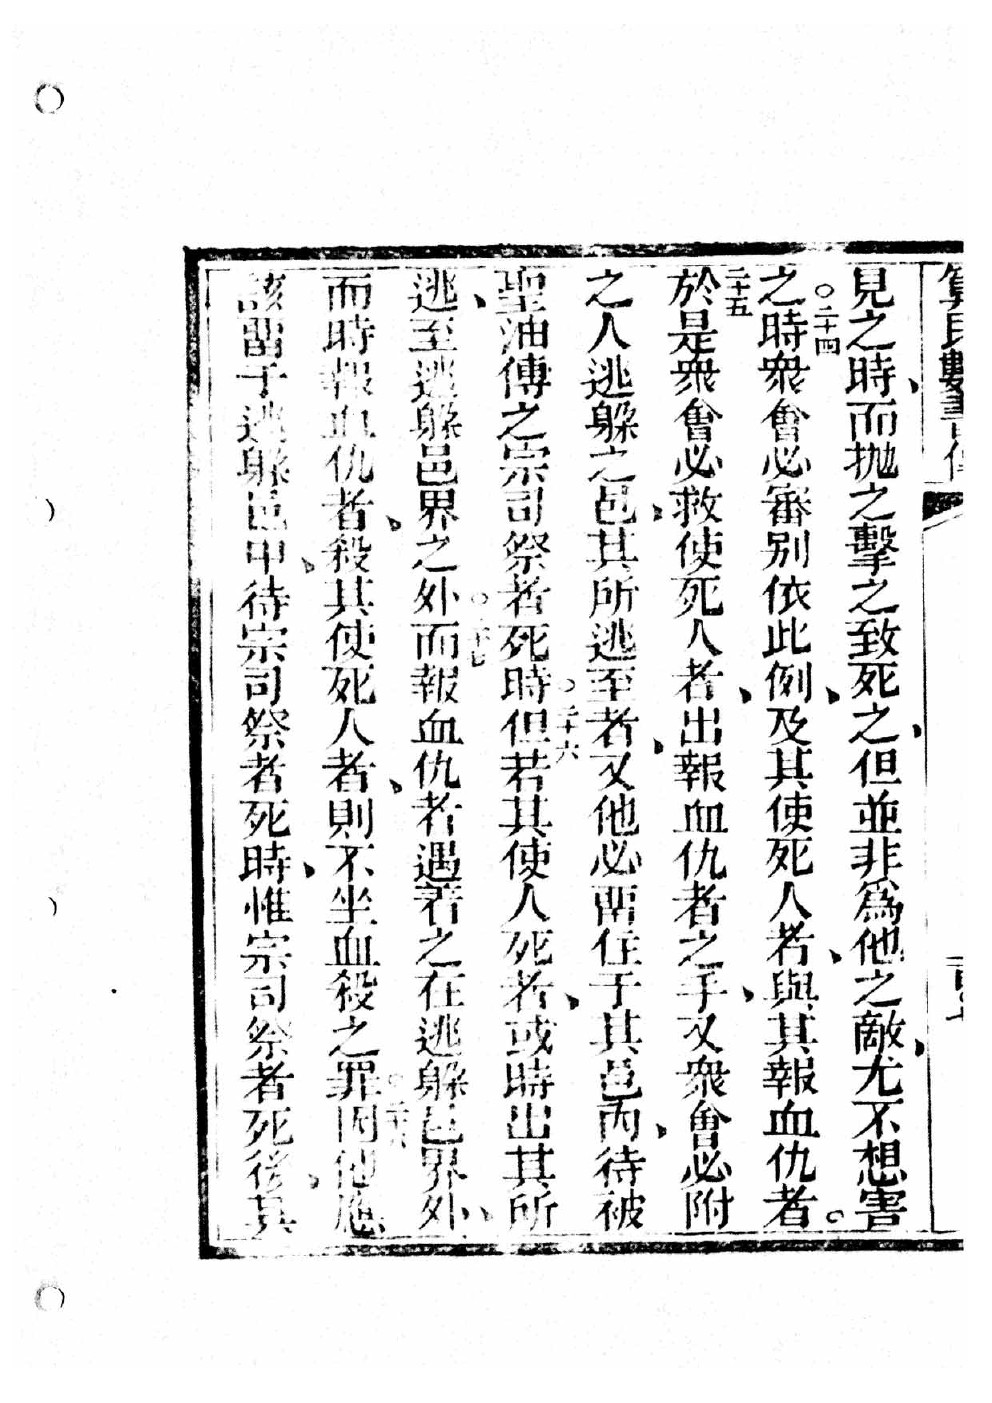 算民數書傳
見之時、而抛之擊之致死之、但並非爲他之敵、尤不想害
之○二十四時衆會必審別依此例、及其使死人者、與其報血仇者。
二十五於是衆會必救使死人者、出報血仇者之手、又衆會必附
之人逃躱之邑、其所逃至者、又他必畱住于其邑內、待被
聖油傅之宗司祭者死時○二十六但若其使人死者、或時出其所
逃、至逃躱邑界之外○二十七而報血仇者遇着之在逃躱邑界外、
而時報血仇者、殺其使死人者、則不坐血殺之罪○二十八因他應
該畱于逃躱邑中、待宗司祭者死時、惟宗司祭者死後、其